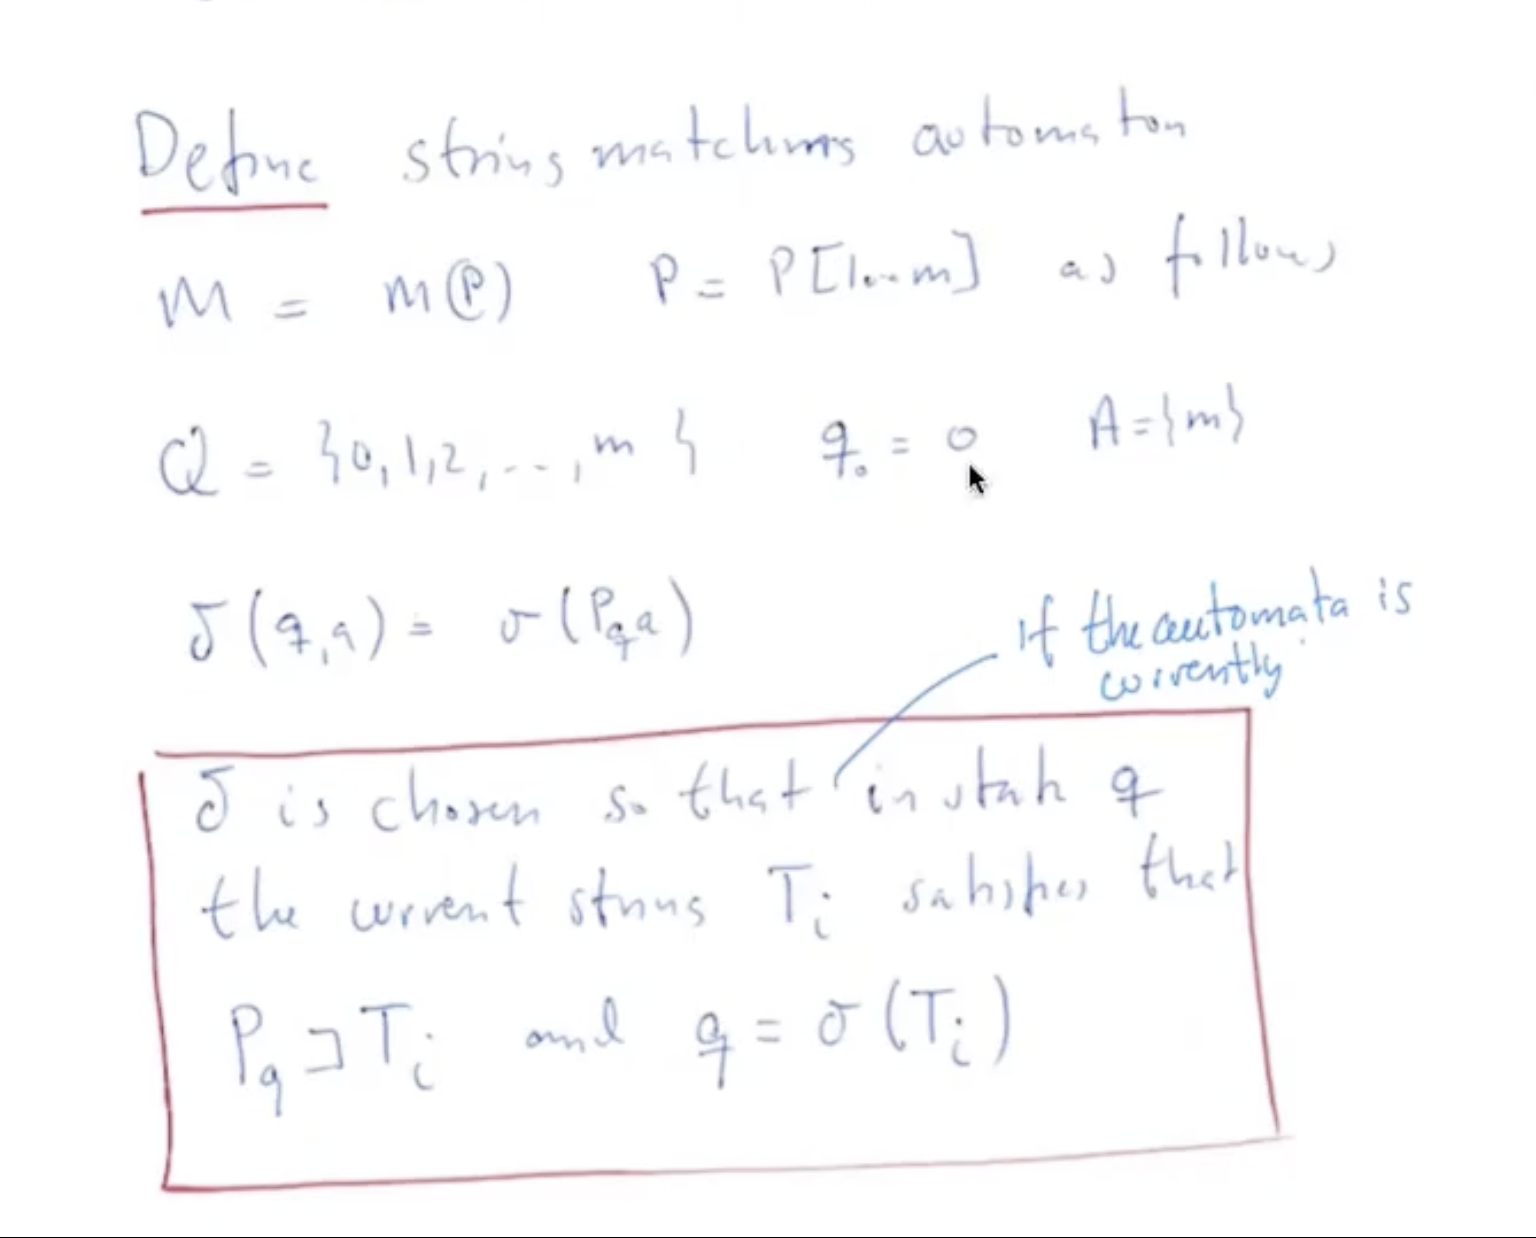 Define string matching automaton
M = M(P) P = P[1...m] as follows
Q = {0,1,2,...,m} q₀ = 0 A={m}
δ(q,a) = σ(P_q a)
if the automata is
currently
δ is chosen so that in state q
the current string T_i satisfies that
P_q ⊐ T_i and q = σ(T_i)